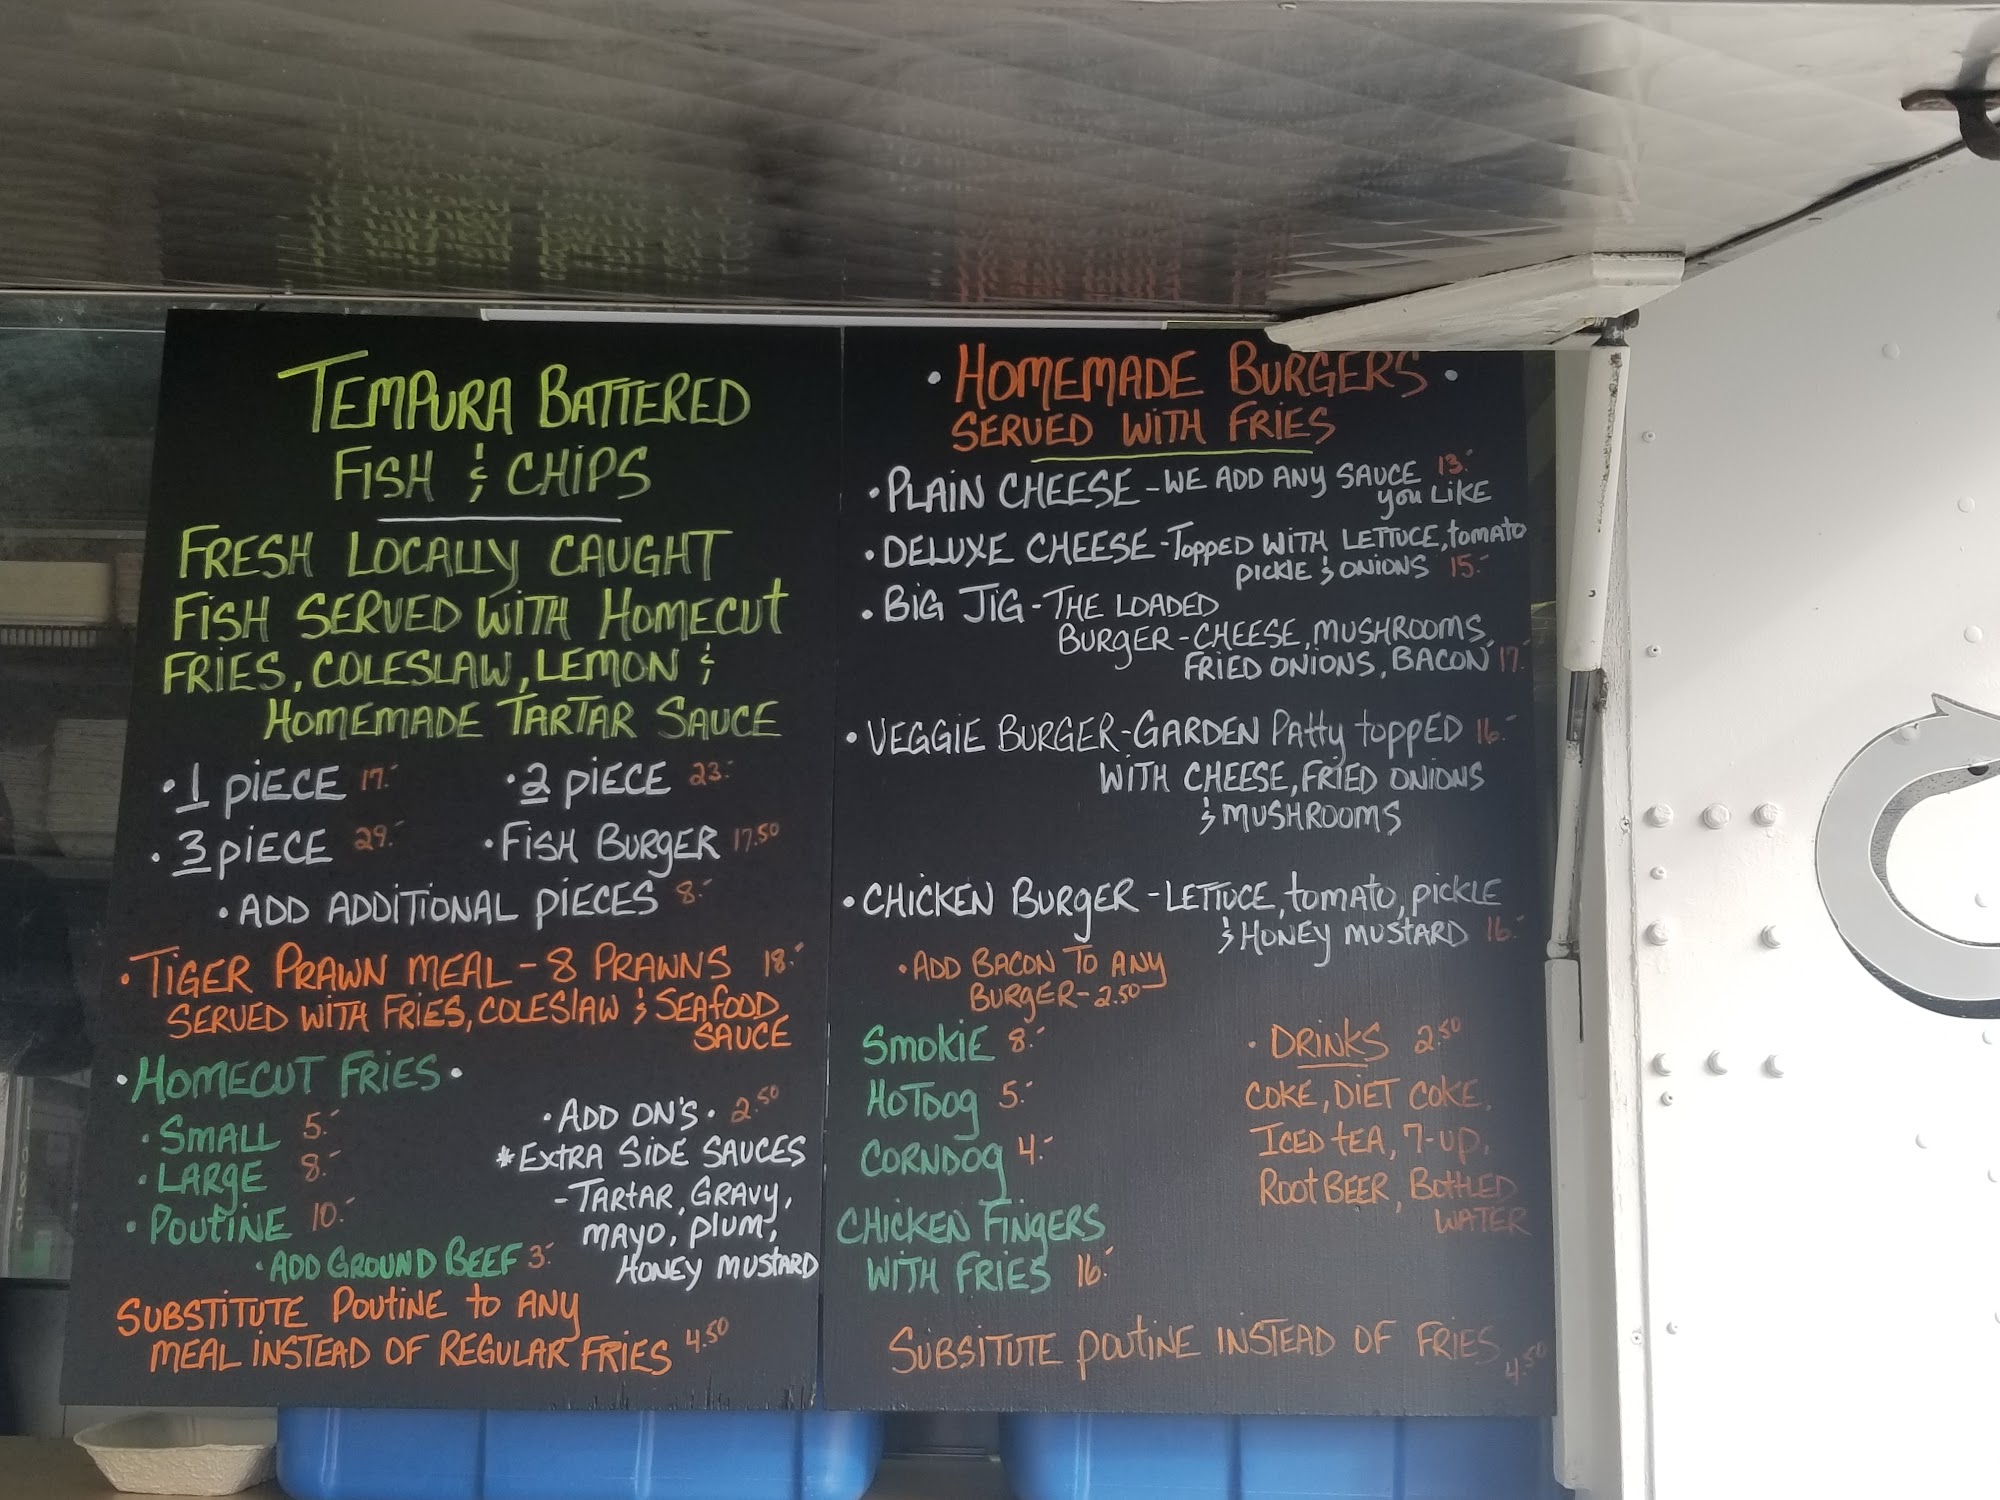 TEMPURA BATTERED
FISH & CHIPS
FRESH LOCALLY CAUGHT
FISH SERVED WITH HOMECUT
FRIES, COLESLAW, LEMON &
HOMEMADE TARTAR SAUCE
• 1 PIECE 17.- • 2 PIECE 23.-
• 3 PIECE 29.- • FISH BURGER 17.50
• ADD ADDITIONAL PIECES 8.-
• TIGER PRAWN MEAL - 8 PRAWNS 18.-
SERVED WITH FRIES, COLESLAW & SEAFOOD
SAUCE
• HOMECUT FRIES •
• SMALL 5.-
• LARGE 8.-
• POUTINE 10.-
• ADD GROUND BEEF 3.-
• ADD ON'S • 2.50
* EXTRA SIDE SAUCES
- TARTAR, GRAVY,
MAYO, PLUM,
HONEY MUSTARD
SUBSTITUTE POUTINE TO ANY
MEAL INSTEAD OF REGULAR FRIES 4.50
• HOMEMADE BURGERS •
SERVED WITH FRIES
• PLAIN CHEESE - WE ADD ANY SAUCE 13.-
YOU LIKE
• DELUXE CHEESE - TOPPED WITH LETTUCE, TOMATO
PICKLE & ONIONS 15.-
• BIG JIG - THE LOADED
BURGER - CHEESE, MUSHROOMS,
FRIED ONIONS, BACON 17.-
• VEGGIE BURGER - GARDEN PATTY TOPPED 16.-
WITH CHEESE, FRIED ONIONS
& MUSHROOMS
• CHICKEN BURGER - LETTUCE, TOMATO, PICKLE
& HONEY MUSTARD 16.-
• ADD BACON TO ANY
BURGER - 2.50
SMOKIE 8.-
HOTDOG 5.-
CORNDOG 4.-
CHICKEN FINGERS
WITH FRIES 16.-
• DRINKS 2.50
COKE, DIET COKE,
ICED TEA, 7-UP,
ROOT BEER, BOTTLED
WATER
SUBSITUTE POUTINE INSTEAD OF FRIES 4.50